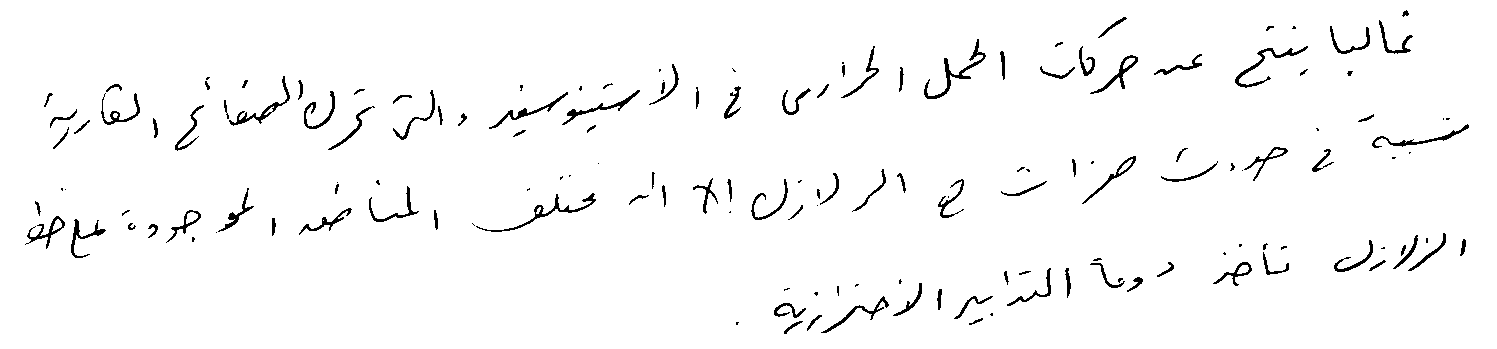 غالبا ينتج عن حركات الحمل الحراري في الاستينوسفير والتي تحرك الصفائح القارية
متسببة في حدوث هزات هي الزلازل إلا أن مختلف المناطق الموجودة على خط
الزلازل تأخذ دوماً التدابير الاحترازية .